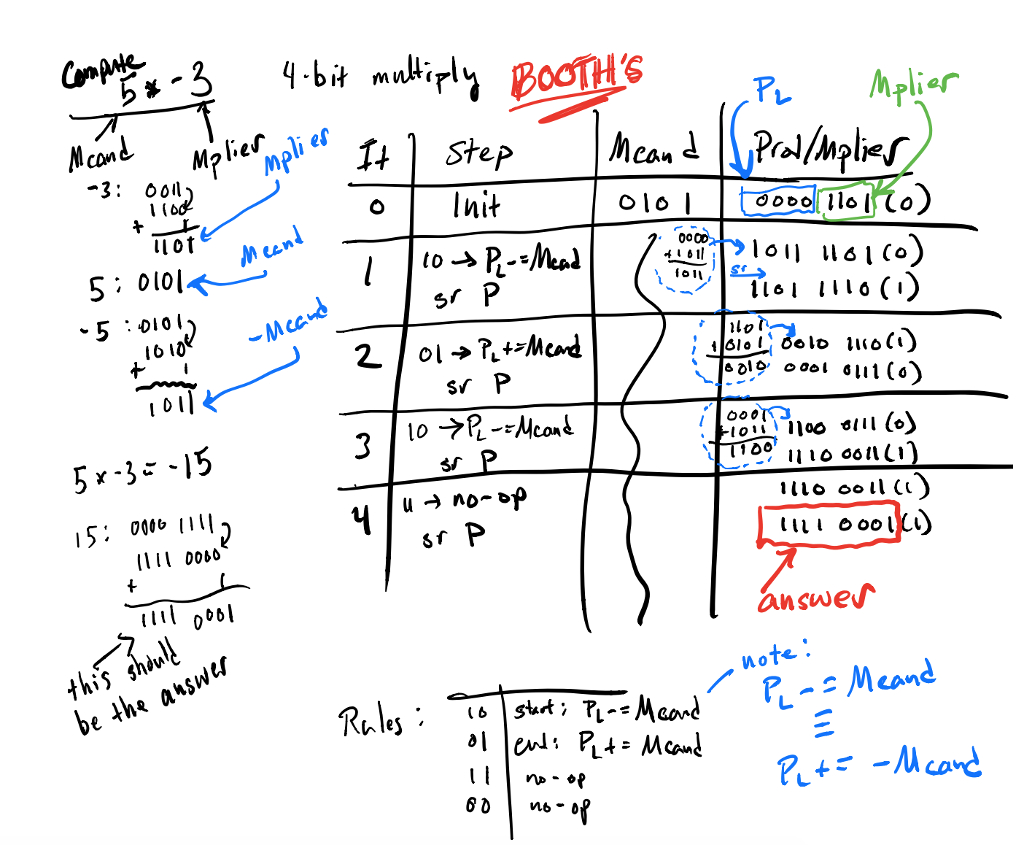 Compute
5 * -3
Mcand Mplier
-3: 0011
1100
+ 1
1101
Mplier
5: 0101
Mcand
-5: 0101
1010
+ 1
1011
-Mcand
5 x -3 = -15
15: 0000 1111
1111 0000
+ 1
1111 0001
this should
be the answer
4-bit multiply BOOTH'S
PL Mplier
It Step Mcand Prod/Mplier
0 Init 0101 0000 1101 (0)
1 10 → PL -= Mcand 1011 1101 (0)
sr P 1101 1110 (1)
0000
+1011
1011
sr
2 01 → PL += Mcand 0010 1110 (1)
sr P 0001 0111 (0)
1101
+0101
0010
3 10 → PL -= Mcand 1100 0111 (0)
sr P 1110 0011 (1)
0001
+1011
1100
4 11 → no-op 1110 0011 (1)
sr P 1111 0001 (1)
answer
Rules:
10 start: PL -= Mcand
01 end: PL += Mcand
11 no-op
00 no-op
note:
PL -= Mcand
≡
PL += -Mcand